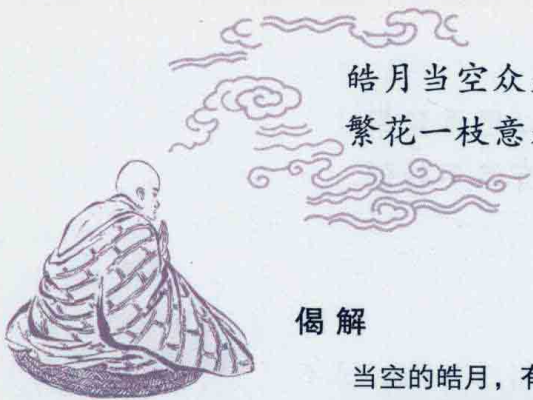 皓月当空众
繁花一枝意
偈解
当空的皓月，有